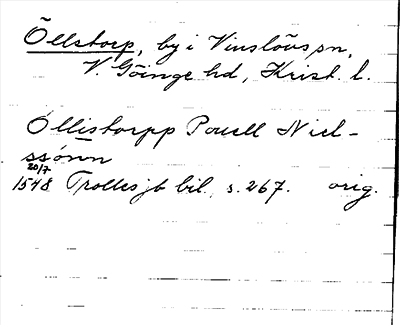 Õllstorp, by i Vinslövs sn,
V. Göinge hd, Krist. l.
Ollistorpp Pouell Niel-
ssønn
20/7
1548 Trolles jb bil. s. 267. orig.